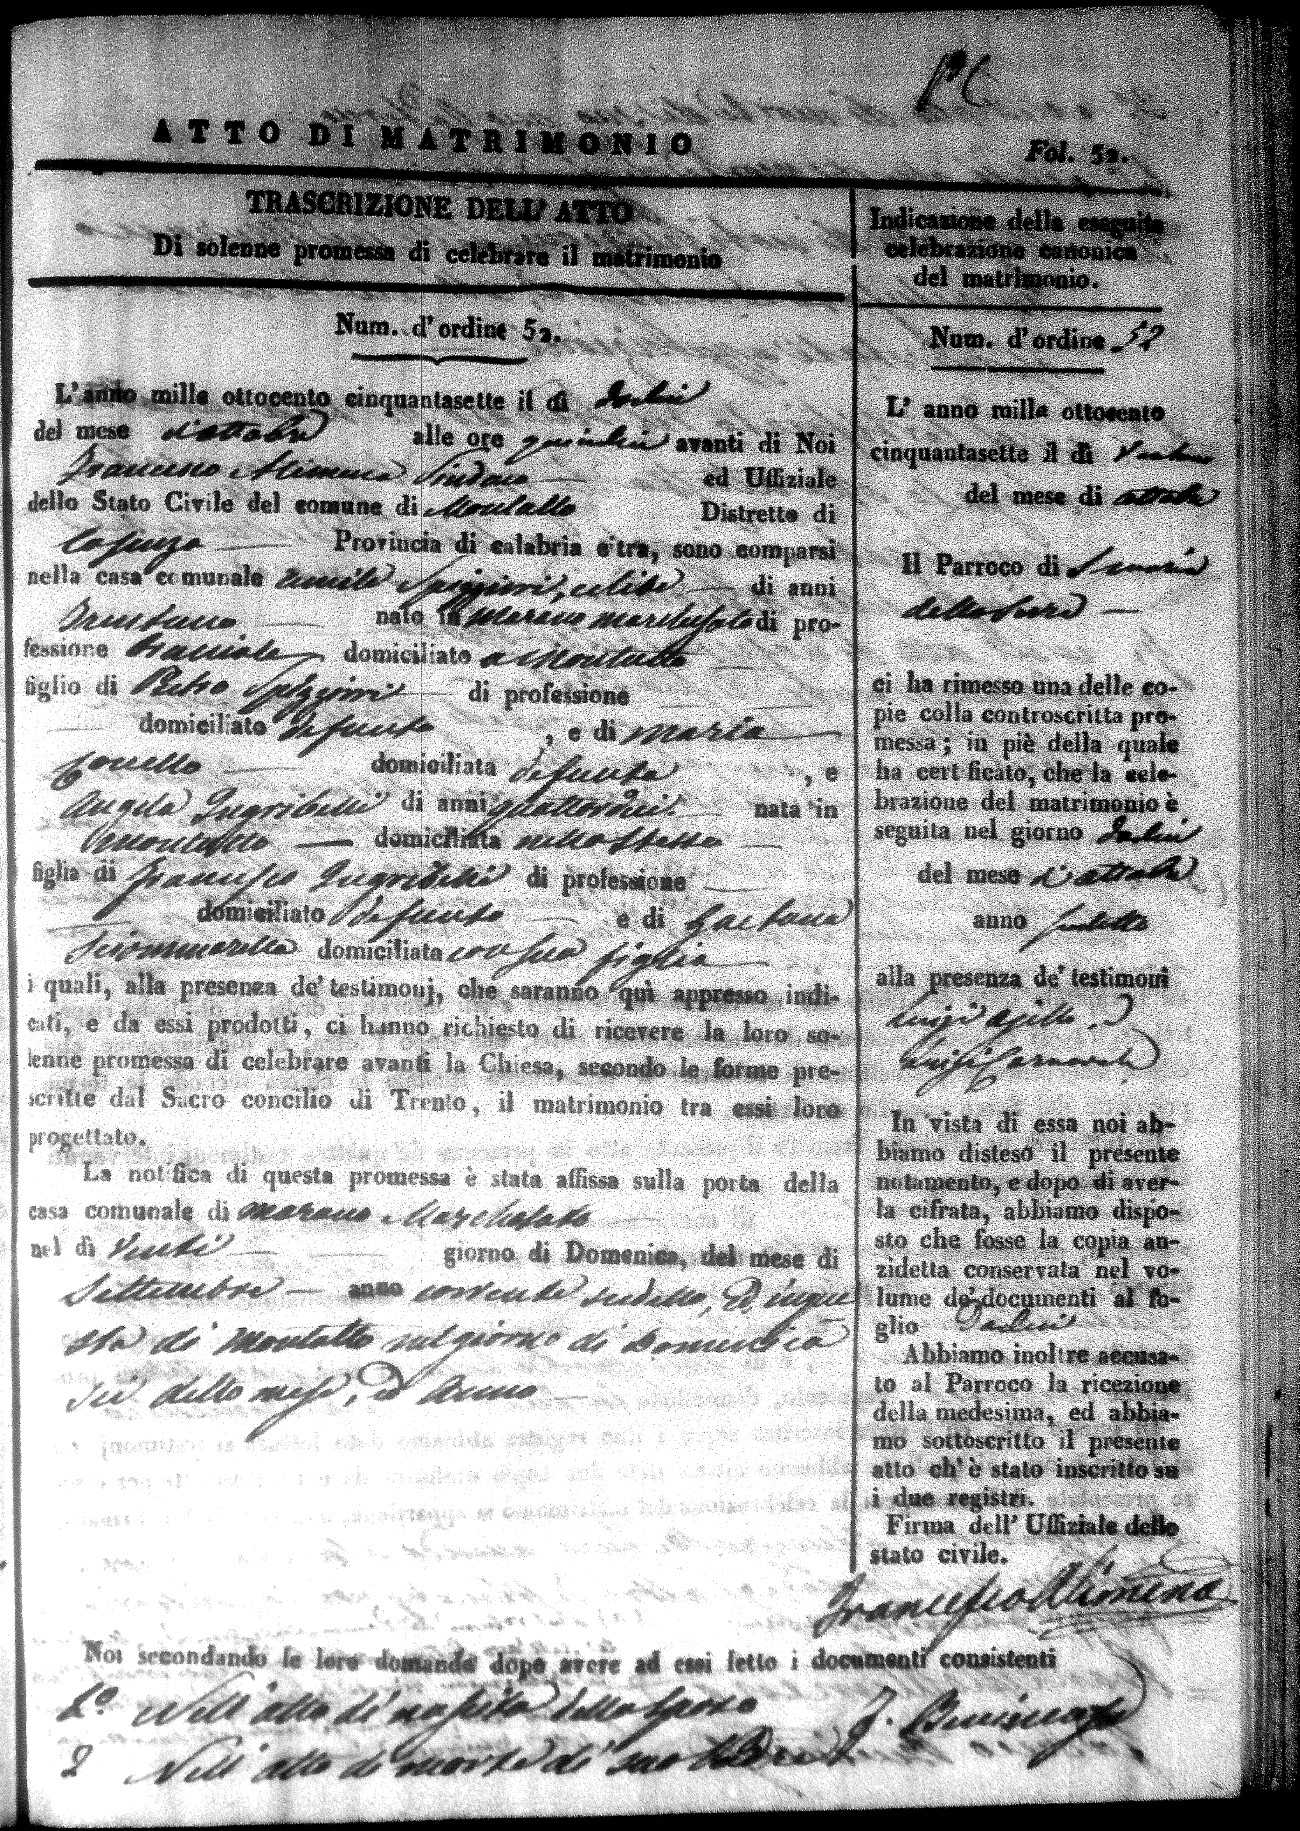 ATTO DI MATRIMONIO
Fol. 52.
TRASCRIZIONE DELL' ATTO
Di solenne promessa di celebrare il matrimonio
Num. d'ordine 52.
L'anno mille ottocento cinquantasette il dì dodici
del mese d'ottobre alle ore quindici avanti di Noi
Francesco Alimena Sindaco ed Uffiziale
dello Stato Civile del comune di Montalto Distretto di
Cosenza Provincia di calabria citra, sono comparsi
nella casa comunale celibe di anni
nato in Marano Marchesato di pro-
fessione Bracciale domiciliato a Montalto
figlio di Pietro di professione
domiciliato defunto, e di Maria
domiciliata defunta, e
Angela di anni quattordici nata in
Montalto domiciliata nello stesso
figlia di Francesco di professione
domiciliato defunto e di Gaetana
Sciammarella domiciliata con sua figlia
i quali, alla presenza de' testimonj, che saranno quì appresso indi-
cati, e da essi prodotti, ci hanno richiesto di ricevere la loro so-
lenne promessa di celebrare avanti la Chiesa, secondo le forme pre-
scritte dal Sacro concilio di Trento, il matrimonio tra essi loro
progettato.
La notifica di questa promessa è stata affissa sulla porta della
casa comunale di Marano Marchesato
nel dì venti giorno di Domenica, del mese di
Settembre anno corrente sudetto, ed in que
sta di Montalto nel giorno di Domenica
sei detto mese, ed anno
Indicazione della eseguita
celebrazione canonica
del matrimonio.
Num. d'ordine 52
L' anno mille ottocento
cinquantasette il dì
del mese di ottobre
Il Parroco di S Maria
della Serra
ci ha rimesso una delle co-
pie colla controscritta pro-
messa; in piè della quale
ha certificato, che la cele-
brazione del matrimonio è
seguita nel giorno dodici
del mese d'ottobre
anno sudetto
alla presenza de' testimoni
Luigi
Luigi Carnevale
In vista di essa noi ab-
biamo disteso il presente
notamento, e dopo di aver-
la cifrata, abbiamo dispo-
sto che fosse la copia an-
zidetta conservata nel vo-
lume de' documenti al fo-
glio
Abbiamo inoltre accusa-
to al Parroco la ricezione
della medesima, ed abbia-
mo sottoscritto il presente
atto ch'è stato inscritto su
i due registri.
Firma dell' Uffiziale dello
stato civile.
Francesco Alimena
Noi secondando le loro domande dopo avere ad essi letto i documenti consistenti
1º Nell'atto di nascita dello sposo
2 Nell'atto di morte di suo Padre